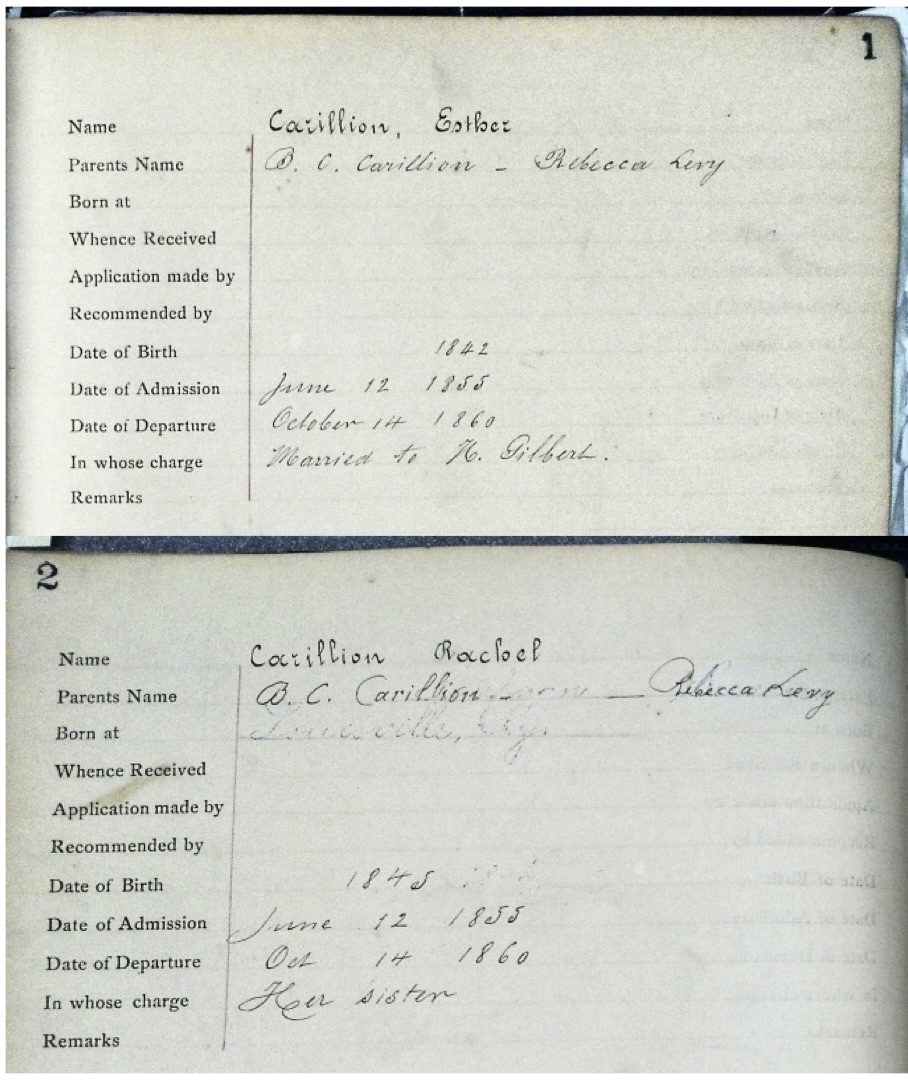 1
Name Carillion, Esther
Parents Name B. C. Carillion - Rebecca Levy
Born at
Whence Received
Application made by
Recommended by
Date of Birth 1842
Date of Admission June 12 1855
Date of Departure October 14 1860
In whose charge Married to H. Gilbert.
Remarks
2
Name Carillion Rachel
Parents Name B. C. Carillion - Rebecca Levy
Born at Louisville, Ky.
Whence Received
Application made by
Recommended by
Date of Birth 1845
Date of Admission June 12 1855
Date of Departure Oct 14 1860
In whose charge Her sister
Remarks